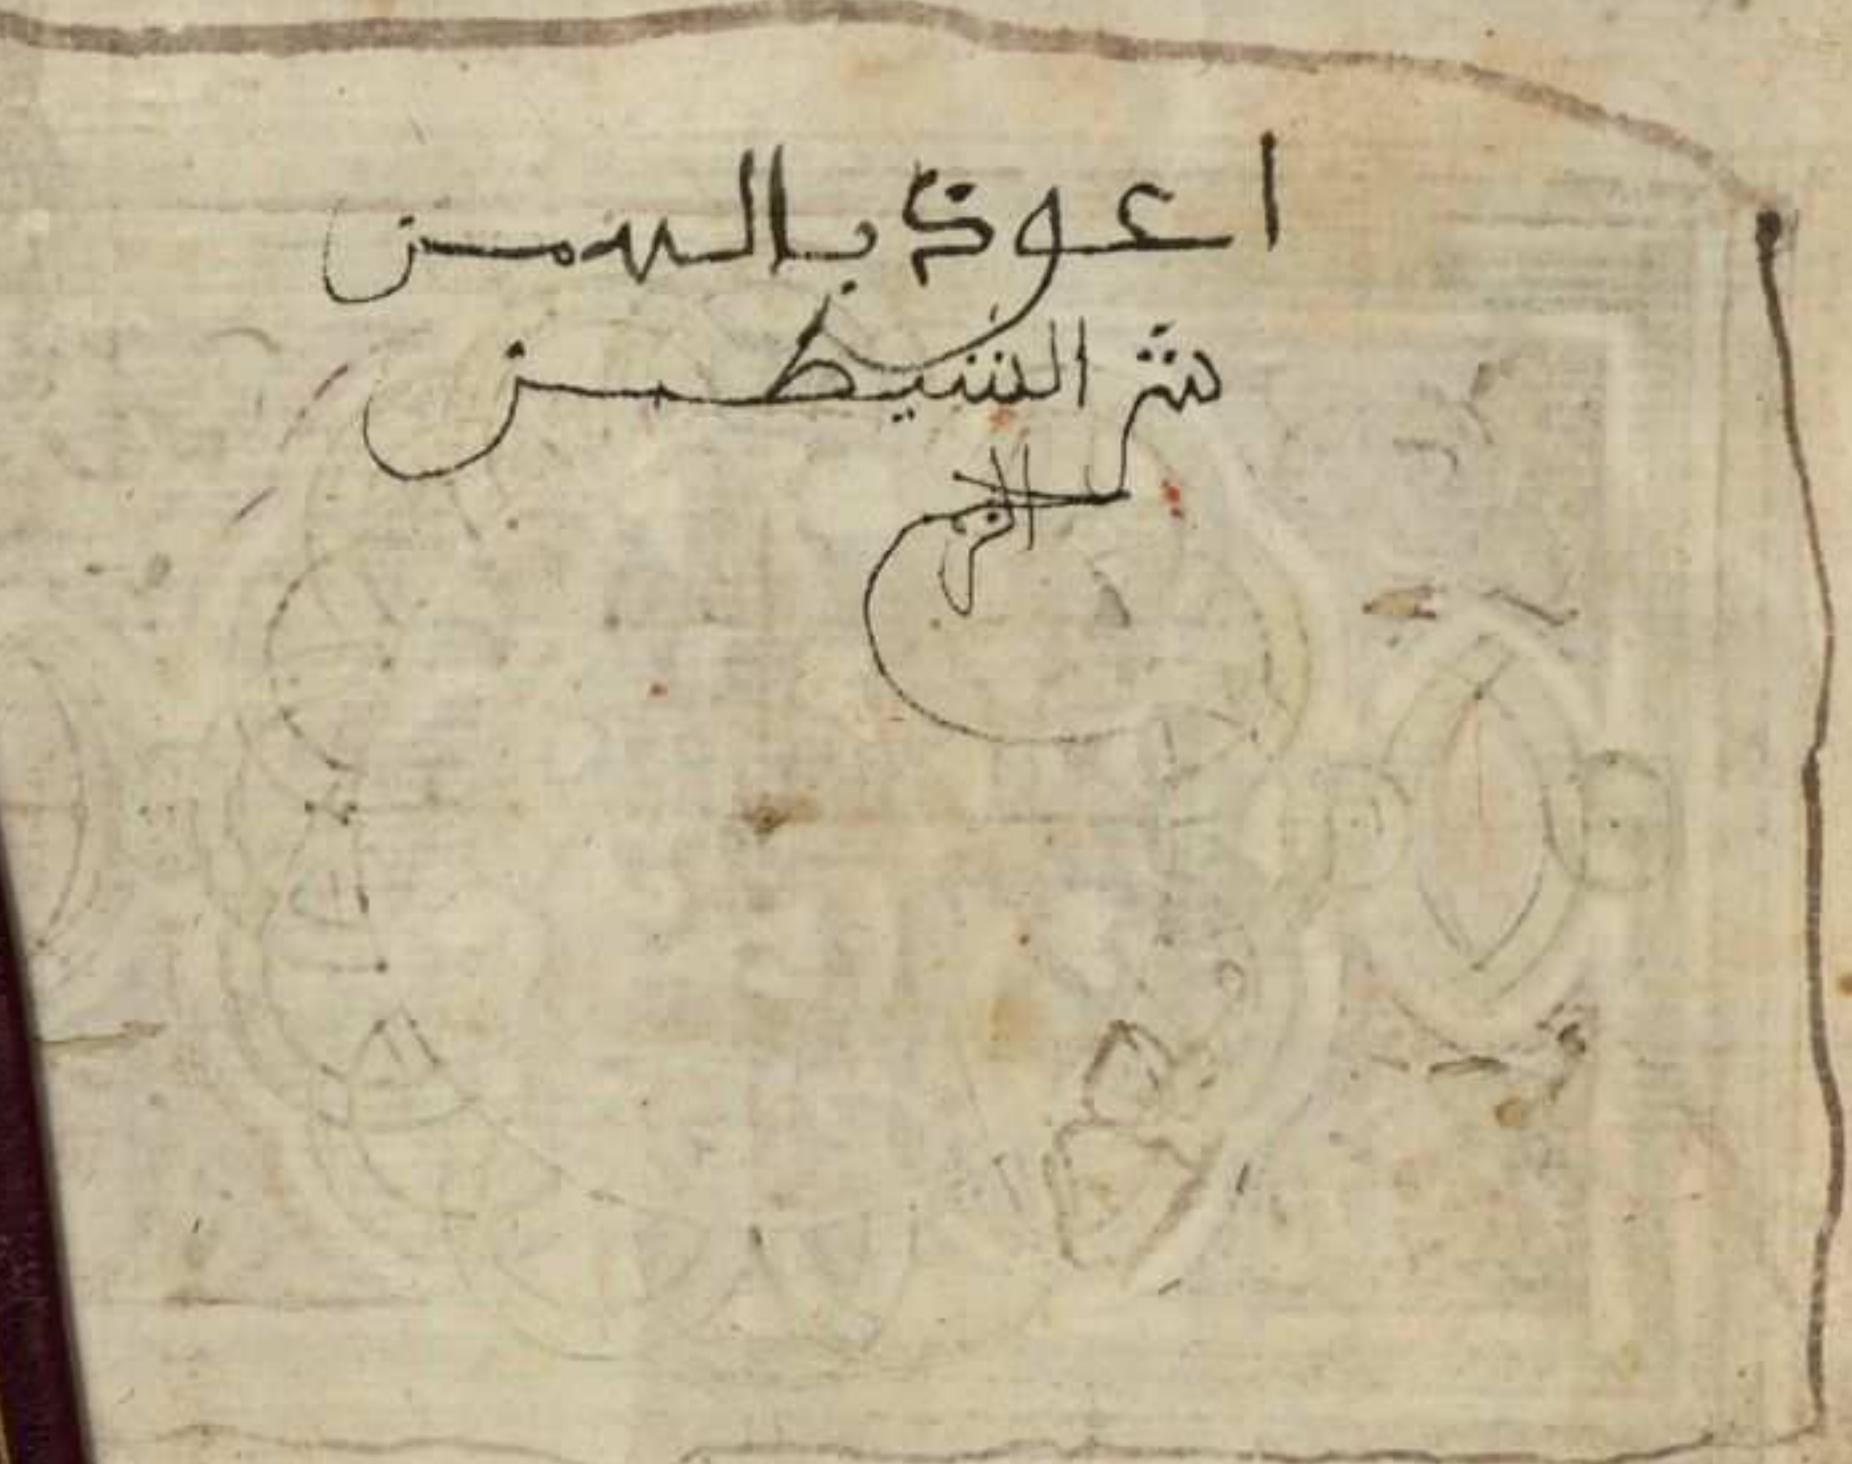 اعوذ بالله من
شر الشيطن
الرجيم